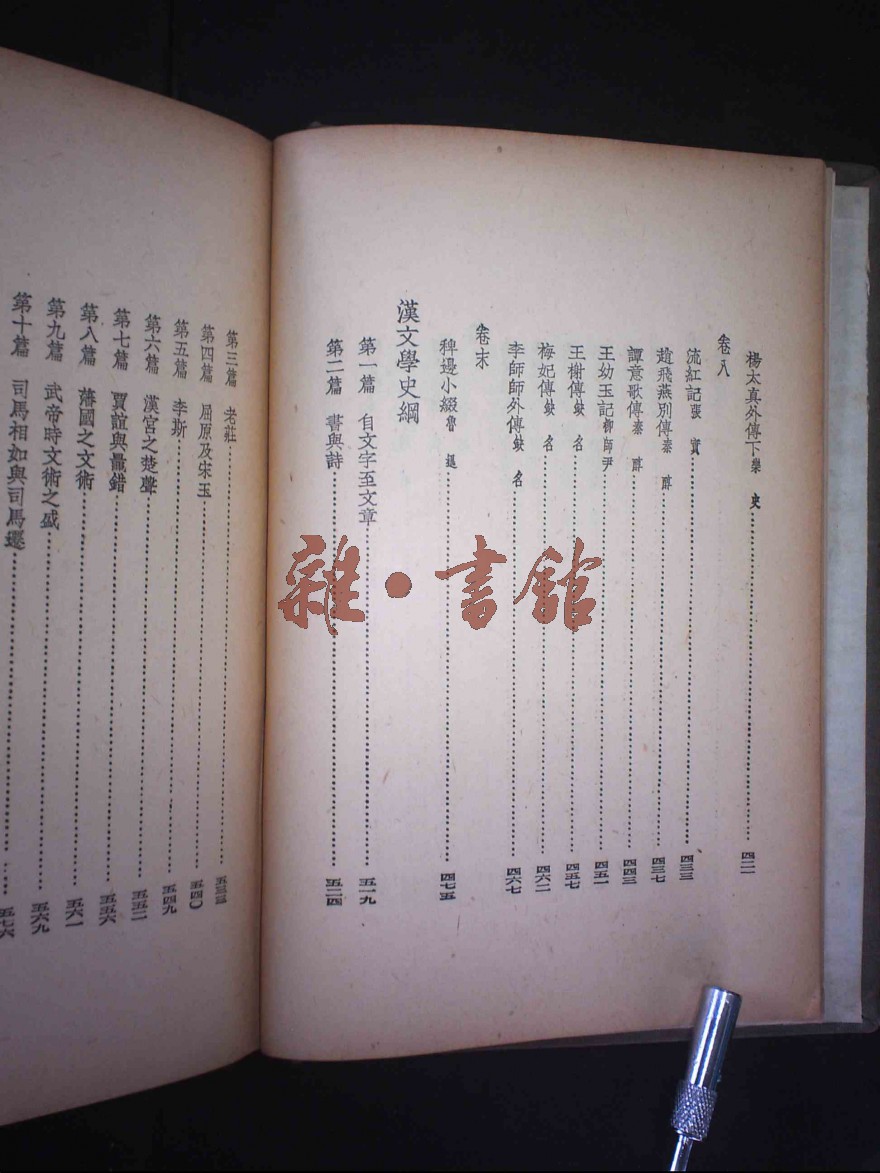 楊太真外傳下樂 史……四二一
卷八
流紅記張 實……四三三
趙飛燕別傳秦 醇……四三七
譚意歌傳秦 醇……四四三
王幼玉記柳師尹……四五一
王榭傳缺 名……四五七
梅妃傳缺 名……四六二
李師師外傳缺 名……四六七
卷末
稗邊小綴魯 迅……四七五
漢文學史綱
第一篇 自文字至文章……五一九
第二篇 書與詩……五二四
第三篇 老莊……五三三
第四篇 屈原及宋玉……五四〇
第五篇 李斯……五四九
第六篇 漢宮之楚聲……五五二
第七篇 賈誼與鼂錯……五五六
第八篇 藩國之文術……五六一
第九篇 武帝時文術之盛……五六九
第十篇 司馬相如與司馬遷……五七六
雜·書館